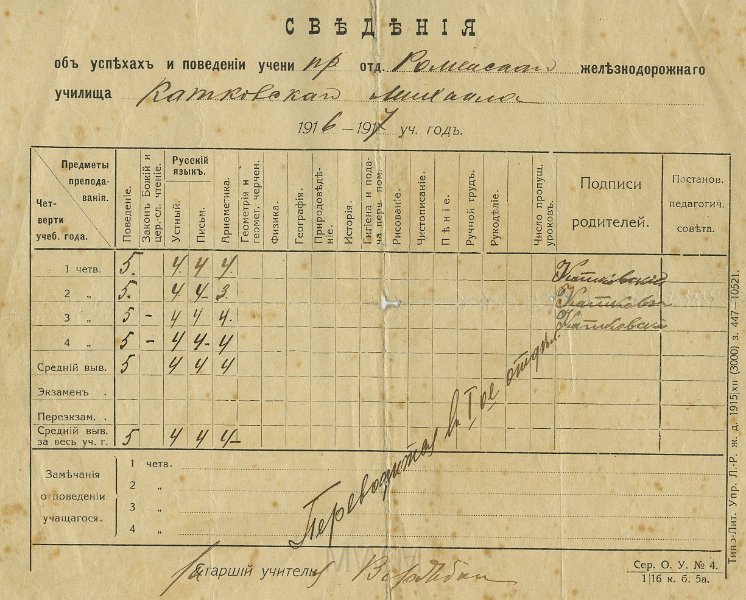 СВѢДѢНІЯ
объ успѣхахъ и поведеніи учени пр отд. Роменской желѣзнодорожнаго
училища Катковскай Михаила
1916–1917 уч. годъ.
Предметы преподаванія.
Четверти учеб. года.
Поведеніе.
Законъ Божій и цер.-сл. чтеніе.
Русскій языкъ.
Устный.
Письм.
Ариѳметика.
Геометрія и геомет. черчен.
Физика.
Географія.
Природовѣдѣніе.
Исторія.
Гигіена и подача перв. пом.
Рисованіе.
Чистописаніе.
Пѣніе.
Ручной трудъ.
Рукодѣліе.
Число пропущ. уроковъ.
Подписи родителей.
Постанов. педагогич. совѣта.
1 четв. 5. 4. 4 4. Катковскій
2 „ 5. 4 4- 3.
3 „ 5 - 4 4 4. Катковскій
4 „ 5 - 4 4- 4
Средній выв. 5 4 4 4
Экзаменъ .
Переэкзам. .
Средній выв. за весь уч. г. 5 4 4 4-
Переводится въ I ое отдѣл.
Замѣчанія о поведеніи учащагося.
1 четв.
2 „
3 „
4 „
За Старшій учитель
Сер. О. У. № 4.
1|16 к. б. 5а.
Типо-Лит. Упр. Л.-Р. ж. д. 1915|хн (3000) з. 447—10521.